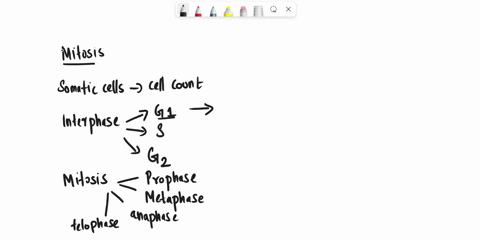 Mitosis
Somatic cells → cell count
G1 →
Interphase
S
G2
Mitosis
Prophase
Metaphase
anaphase
telophase